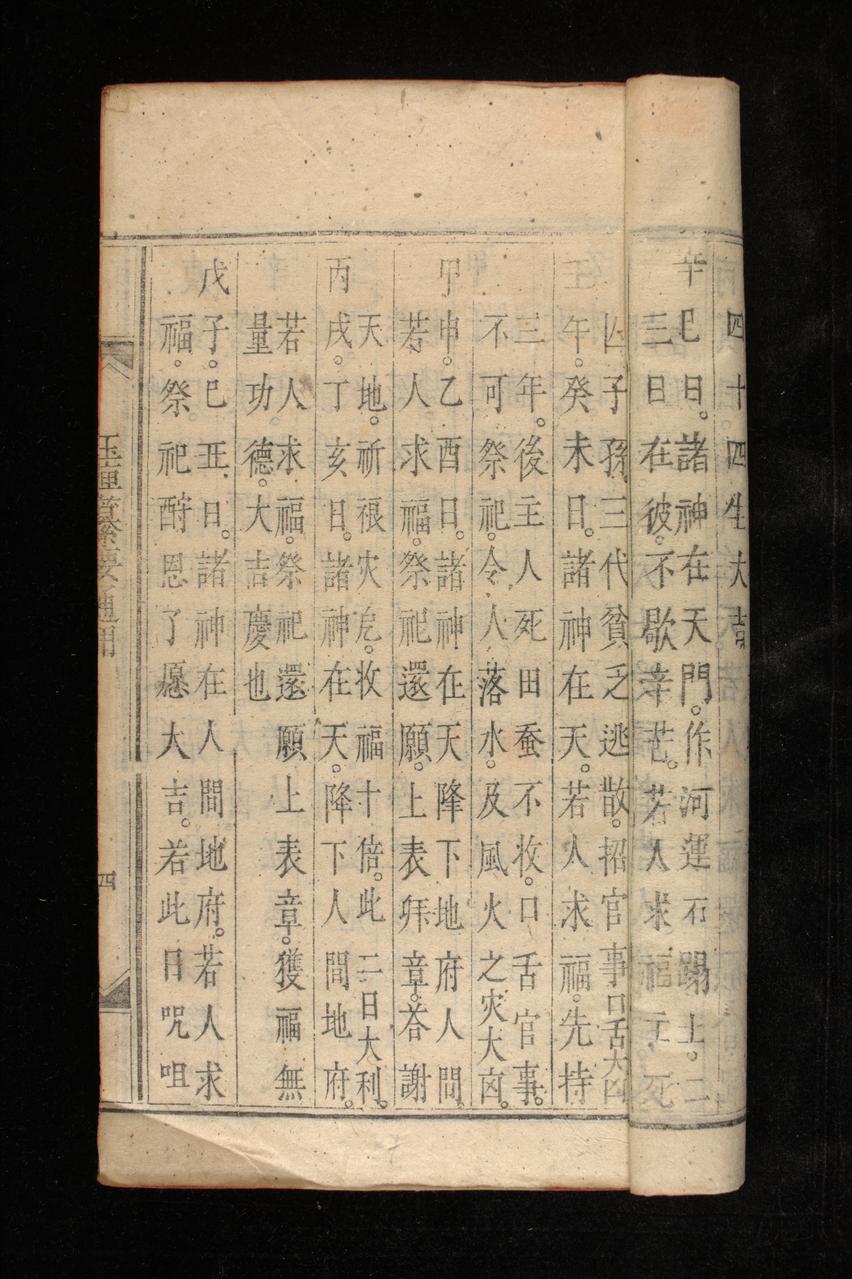 四十四生大吉。
辛巳日。諸神在天門。作河運石踢土。二
三日在彼。不歇辛芒。若人求福主死
囚子孫三代貧乏逃散。招官事口舌大凶
壬午。癸未日。諸神在天。若人求福。先持
三年。後主人死田蚕不收。口舌官事。
不可祭祀。令人落水。及風火之灾大凶。
甲申。乙酉日。諸神在天降下地府人間。
若人求福。祭祀還願。上表拜章。荅謝
天地。祈禳灾危。收福十倍。此二日大利。
丙戌。丁亥日。諸神在天。降下人間地府。
若人求福。祭祀還願上表章。獲福無
量功。德。大吉慶也
戊子。巳丑日。諸神在人間地府。若人求
福。祭祀酧恩了愿大吉。若此日咒咀
玉匣纂要通用
四